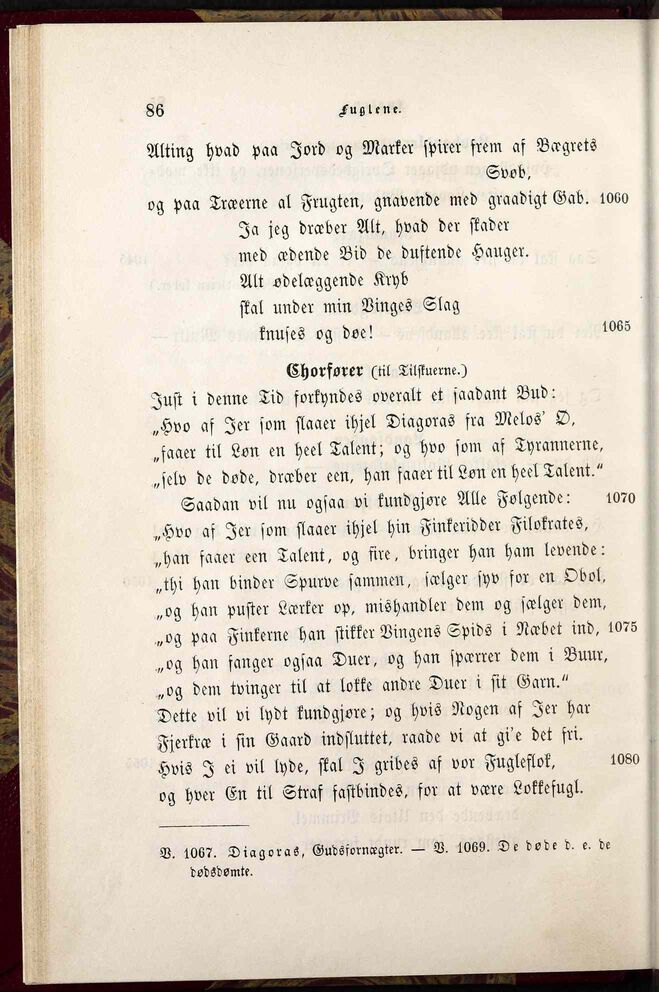 86
Fuglene.
Alting hvad paa Jord og Marker spirer frem af Bægrets
Svøb,
og paa Træerne al Frugten, gnavende med graadigt Gab. 1060
Ja jeg dræber Alt, hvad der skader
med ædende Bid de duftende Hauger.
Alt ødelæggende Kryb
skal under min Vinges Slag
knuses og døe! 1065
Chorfører (til Tilskuerne.)
Just i denne Tid forkyndes overalt et saadant Bud:
„Hvo af Jer som slaaer ihjel Diagoras fra Melos' Ø,
„faaer til Løn en heel Talent; og hvo som af Tyrannerne,
„selv de døde, dræber een, han faaer til Løn en heel Talent."
Saadan vil nu ogsaa vi kundgjøre Alle Følgende: 1070
„Hvo af Jer som slaaer ihjel hin Finkeridder Filokrates,
„han faaer een Talent, og fire, bringer han ham levende:
„thi han binder Spurve sammen, sælger syv for en Obol,
„og han puster Lærker op, mishandler dem og sælger dem,
„og paa Finkerne han stikker Vingens Spids i Næbet ind, 1075
„og han fanger ogsaa Duer, og han spærrer dem i Buur,
„og dem tvinger til at lokke andre Duer i sit Garn."
Dette vil vi lydt kundgjøre; og hvis Nogen af Jer har
Fjerkræ i sin Gaard indsluttet, raade vi at gi'e det fri.
Hvis I ei vil lyde, skal I gribes af vor Fugleflok, 1080
og hver En til Straf fastbindes, for at være Lokkefugl.
V. 1067. Diagoras, Gudsfornægter. — V. 1069. De døde d. e. de
dødsdømte.